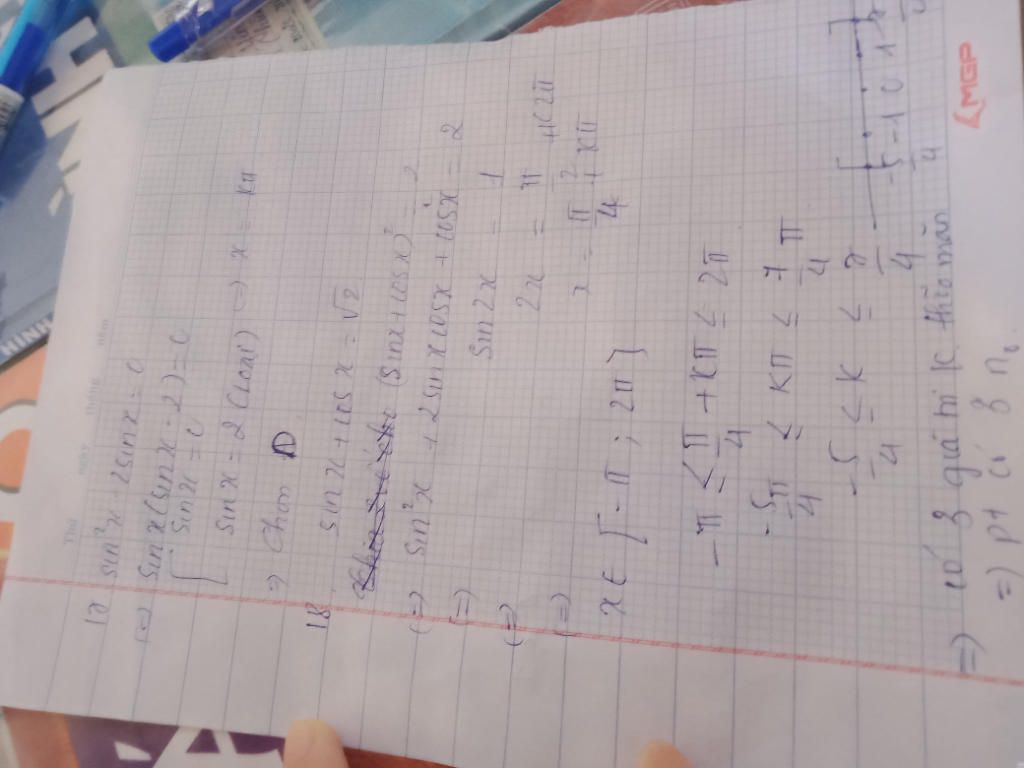 17 sin²x - 2sinx = 0
(=) sinx(sinx - 2) = 0
[ sinx = 0
sinx = 2 (loại) (=) x = kπ
=) Chọn D
18. sinx + cosx = √2
(=) (sinx + cosx)² = 2
(=) sin²x + 2sinxcosx + cos²x = 2
(=) sin2x = 1
(=) 2x = π/2 + k2π
x = π/4 + kπ
x ∈ [-π ; 2π]
-π ≤ π/4 + kπ ≤ 2π
-5π/4 ≤ kπ ≤ 7π/4
-5/4 ≤ k ≤ 7/4
[ -5/4 -1 0 1 ]
=) có 3 giá trị k thỏa mãn
=) pt có 3 no
MGP